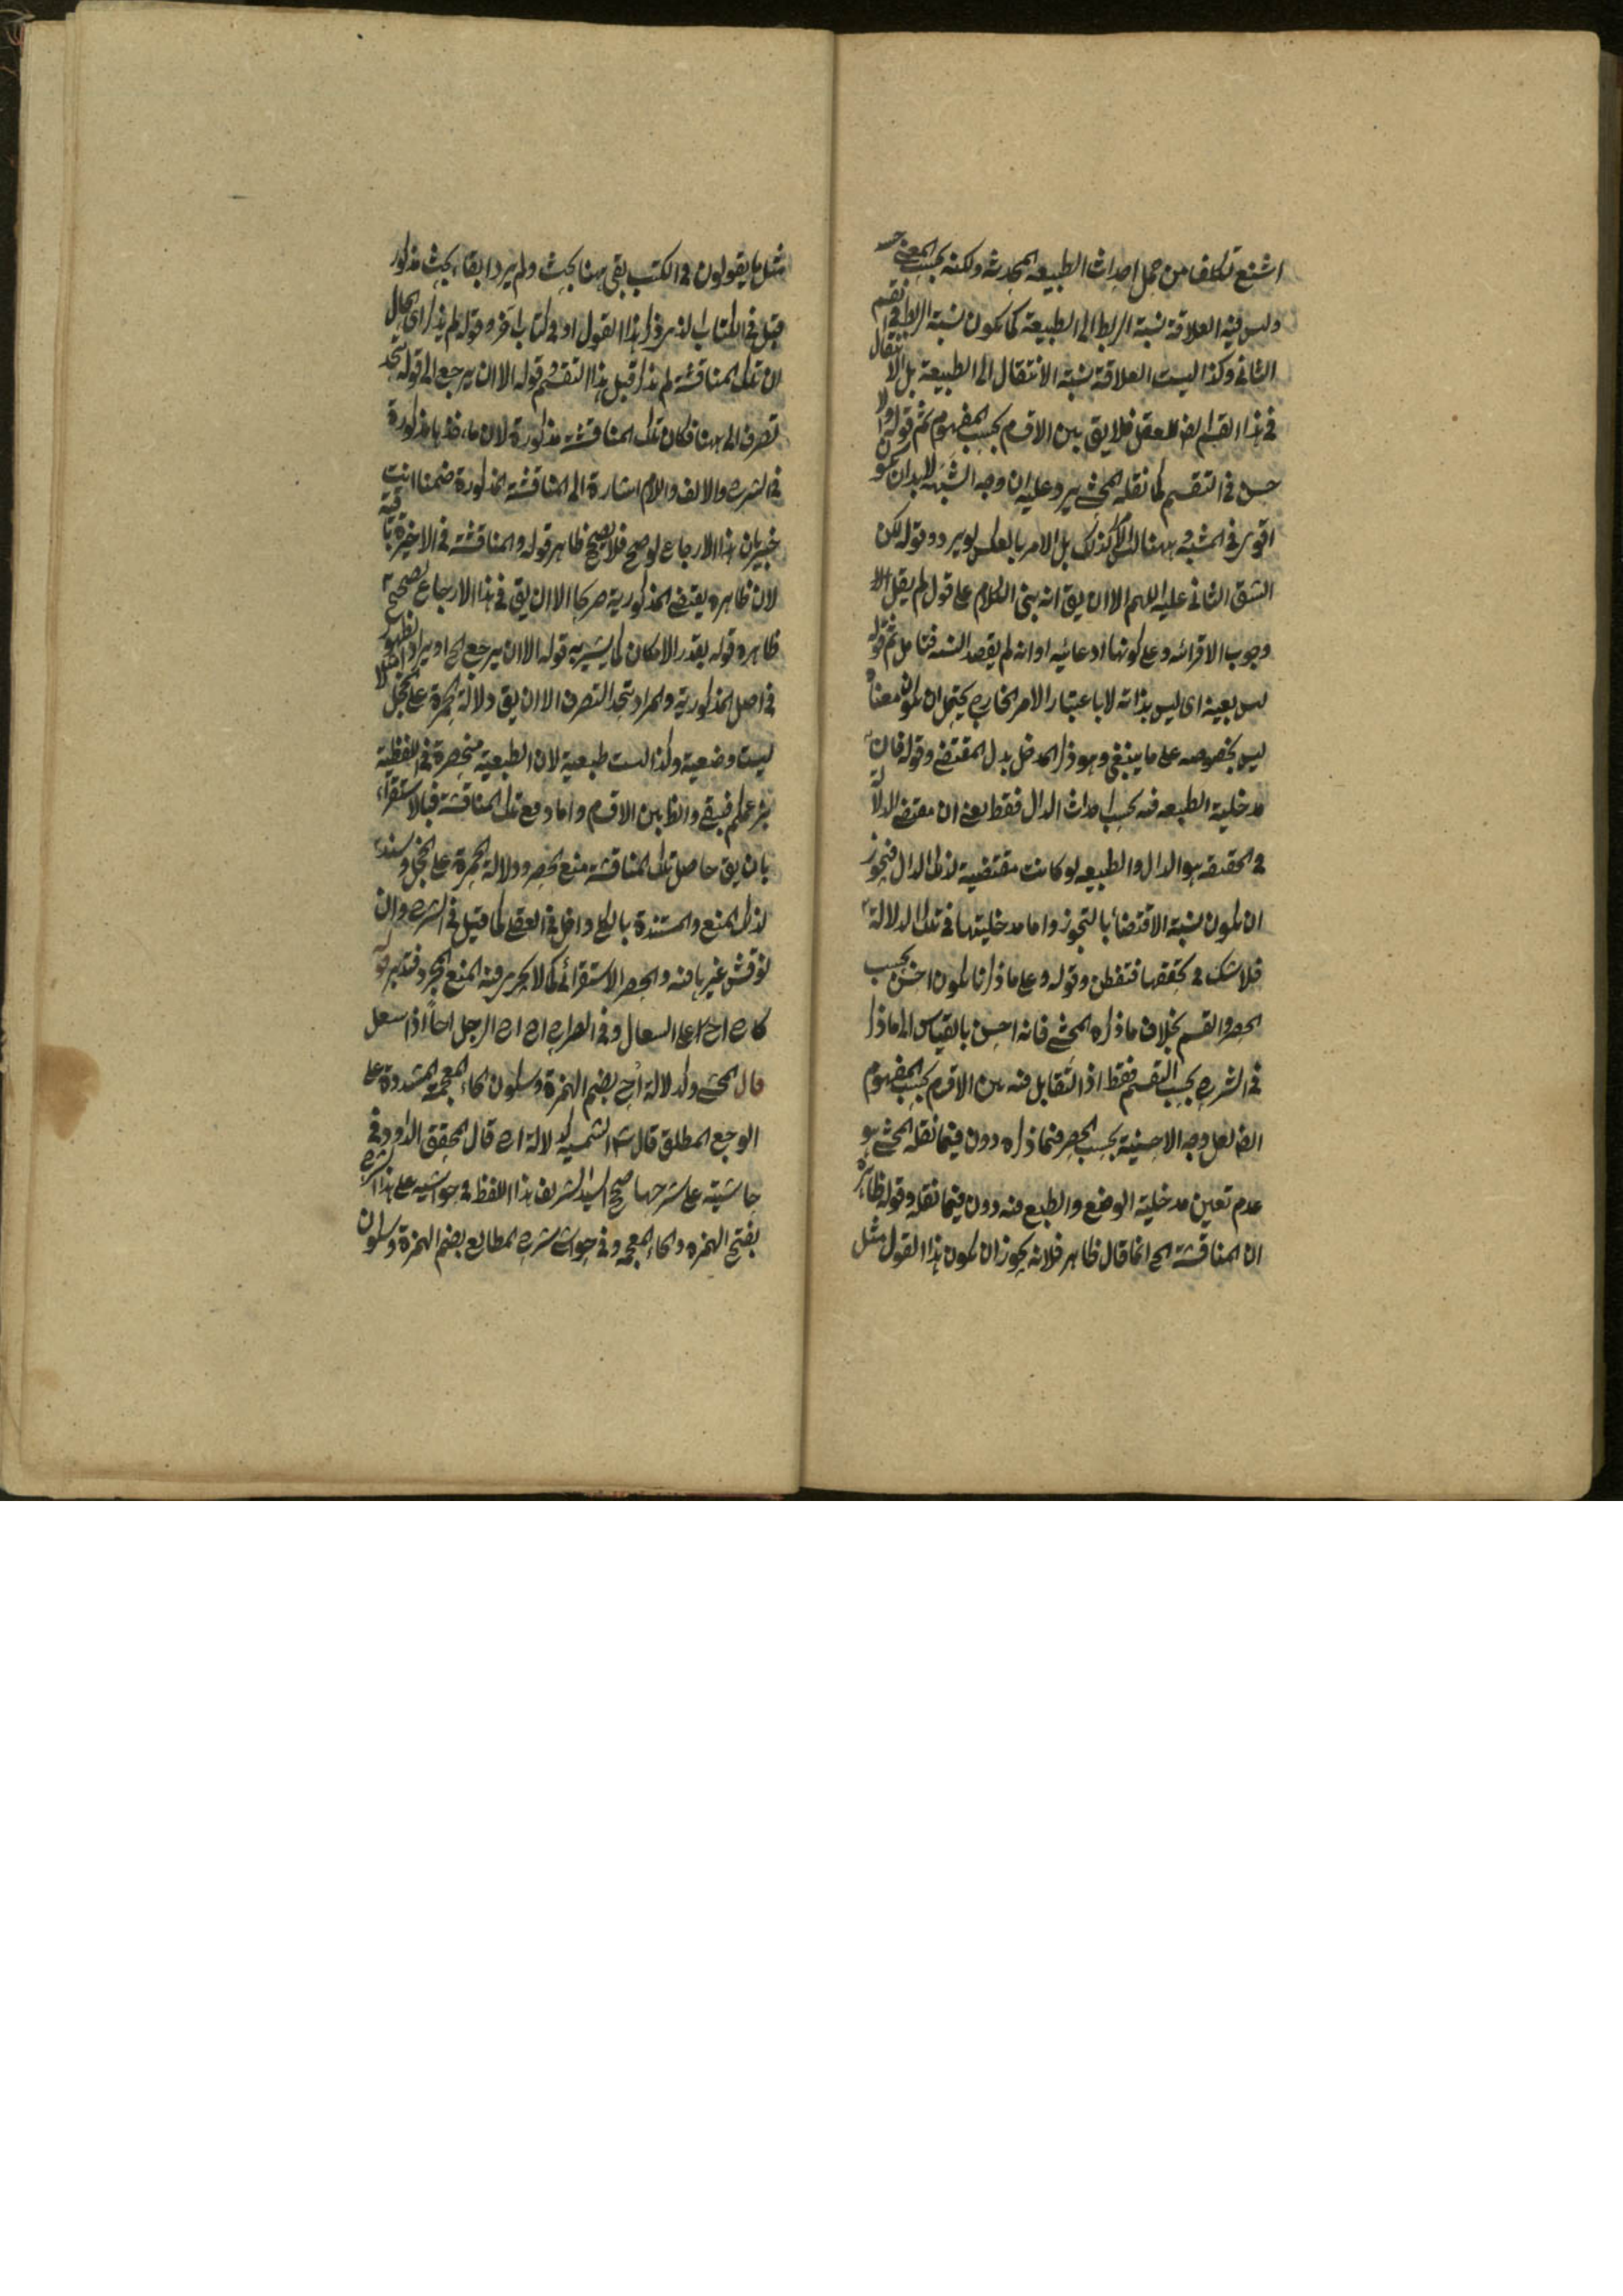 اشنع تكلفا من حمل احداث الطبيعه المحدثه ولكنه بحسب المعنى حسن
وليس فيه العلاقة نسبة الربط الى الطبيعة كما تكون نسبة الربط في القسم
الثانى وكذا ليست العلاقة نسبة الانتقال الى الطبيعة بل الانتقال
في هذا القسم ايضا للعقل فلا يق بين الاقسام بحسب المفهوم ثم قوله ولا
حسن في التقسيم كما نقله المحشى يرد عليه ان وجه الشبه لا بد ان يكون
اقوى في المشبه به وههنا ليس كذلك بل الامر بالعكس لو يرد وقوله لكن
الشق الثانى عليه اللهم الا ان يق انه بنى الكلام على قول لم يقل
وجوب الاقرائه وعلى كونها ادعائيه او انه لم يقصد فتامل ثم قوله
ليس بعينه اى ليس بذاته لا باعتبار الامر الخارج يحتمل ان يكون معناه
ليس بخصوصه على ما ينبغى وهو ذكر المدخل بدل المقتضى وقوله فان
مدخلية الطبيعه فيه بحسب احداث الدال فقط يعنى ان مقتضى الدلالة
في الحقيقه هو الدال والطبيعه لو كانت مقتضية لذلك الدال فيجوز
ان يكون نسبة الاقتضاء بالتجوز واما مدخليتها في تلك الدلالة
فلا شك في تحققها فتفطن وقوله وعلى ما ذكرنا يكون احسن بحسب
الحصر والقسم بخلاف ما ذكره المحشى فانه احسن بالقياس الى ما ذكر
في الشرح بحسب التقسيم فقط اذ التقابل فيه بين الاقسام بحسب المفهوم
ايضا لعل وجه الاحسنية بحسب الحصر فيما ذكره دون فيما نقله المحشى هو
عدم تعين مدخلية الوضع والطبع فيه دون فيما نقله وقوله ظاهره
ان المناقشة الخ انما قال ظاهر فلانه يجوز ان يكون هذا القول مثل
مثل ما يقولون في الكتب بقى ههنا بحث ولم يرد ابقاء بحث مذكور
قبل في الكتاب الذى ذكر هذا القول او في كتاب آخر وقوله لم يذكر اى الحال
ان تلك المناقشة لم يذكر قبل هذا التقسيم قوله الا ان يرجع الى قوله تجد
تصرف الى ههنا فكان تلك المناقشة مذكورة لان ماخذها مذكورة
في الشرح والالف واللام اشارة الى المناقشة المذكورة ضمنا انت
خبير بان هذا الارجاع لو صح فلا يصح ظاهر قوله والمناقشة في الاخيرة باقية
لان ظاهره يقتضى المذكورية صريحا الا ان يق في هذا الارجاع تصحيح
ظاهره قوله بقدر الامكان كما يشير به قوله الا ان يرجع الخ او يراد الظهور
في اصل المذكورية والمراد تجد التصرف الا ان يق دلالة الحمرة على الخجل
ليست وضعية وكذا ليست طبعية لان الطبعية منحصرة في اللفظية
بزعمكم فبقى والظا بين الاقسام واما دفع تلك المناقشة فبالاستقراء
بان يق حاصل تلك المناقشة منع الحصر ودلالة الحمرة على الخجل وسند
لذلك المنع والمستندة بالكل داخل في العقلى كما قيل في الشرح وان
نوقش غيرها فيه والحصر الاستقرائى كما لا يجرى فيه المنع المجرد فتدبر قوله
كاح اح على السعال وفي الصراح اح اح الرجل احا اذا سعل
قال المحشى وكدلالة اخ بضم الهمزة وسكون الخاء المعجمة المشددة على
الوجع المطلق قال شا الشمسيه كدلالة اح قال المحقق الداود في
حاشيته على شرحها صحح السيد الشريف هذا اللفظ في حواشيه على هذا الشرح
بفتح الهمزه والخاء المعجمه وفي حواشى شرح المطالع بضم الهمزة وسكون